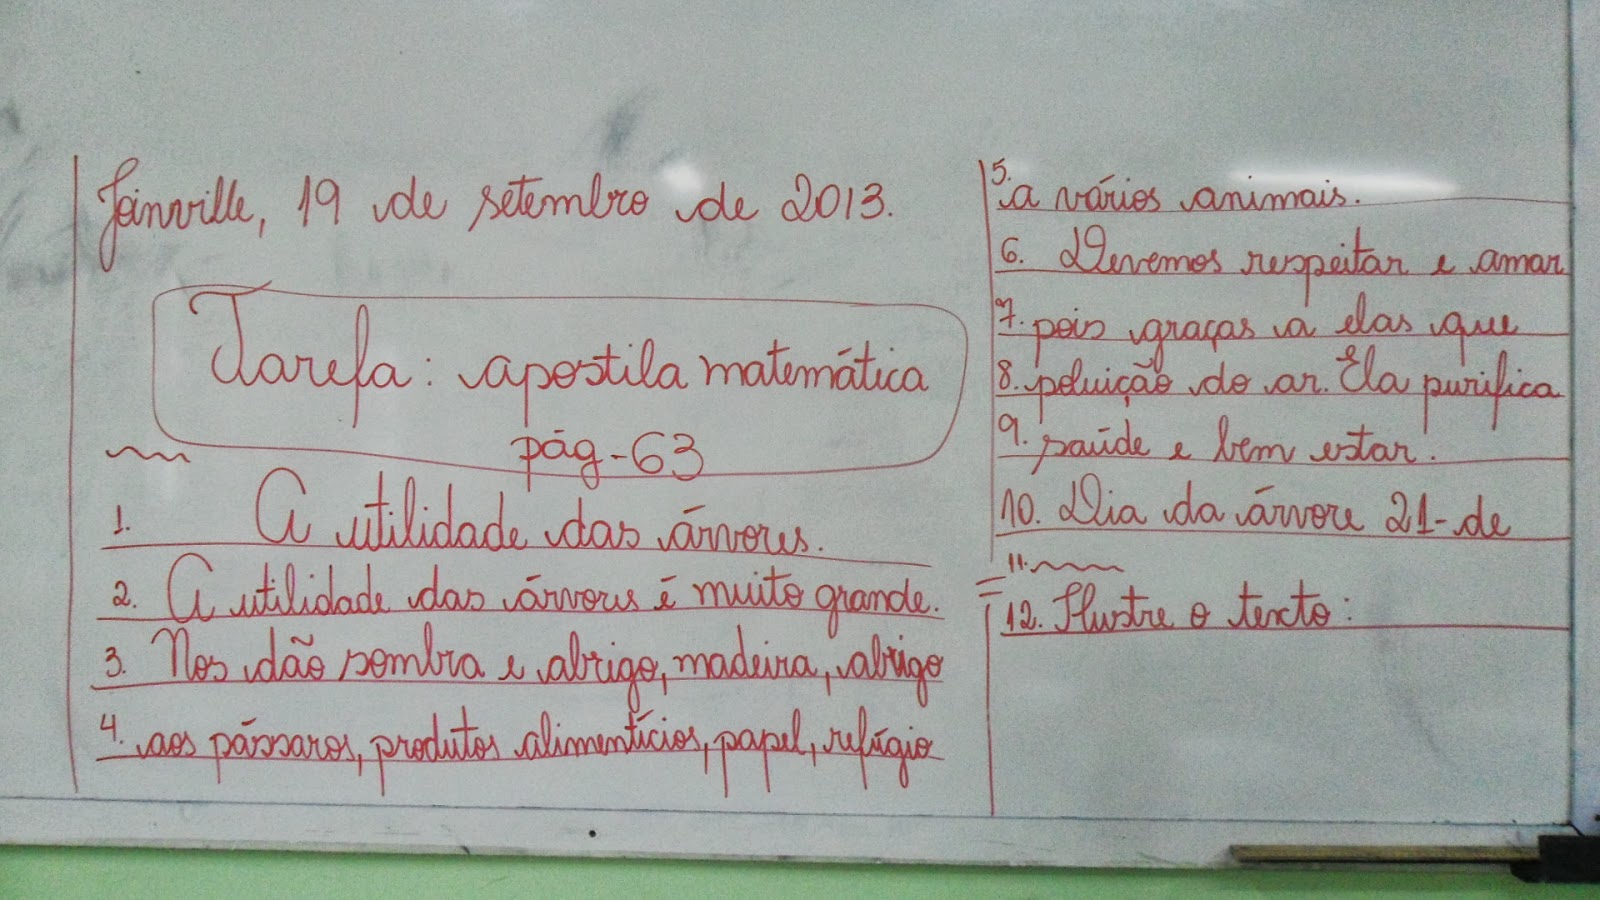 Joinville, 19 de setembro de 2013.
Tarefa: apostila matemática
pág-63
1. A utilidade das árvores.
2. A utilidade das árvores é muito grande.
3. Nos dão sombra e abrigo, madeira, abrigo
4. aos pássaros, produtos alimentícios, papel, refúgio
5. a vários animais.
6. Devemos respeitar e amar
7. pois graças a elas que
8. poluição do ar. Ela purifica
9. saúde e bem estar.
10. Dia da árvore 21-de
11.
12. Ilustre o texto: